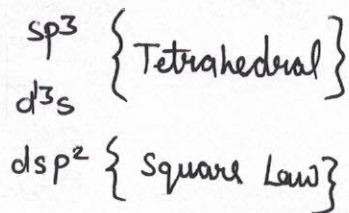 sp³ { Tetrahedral }
d³s
dsp² { Square Law }